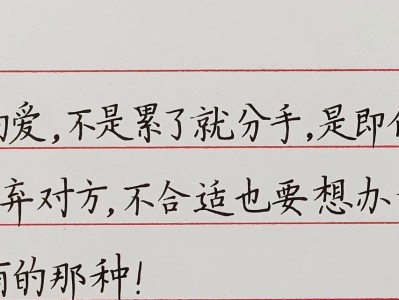 爱,不是累了就分手,是即
弃对方,不合适也要想办
的那种!